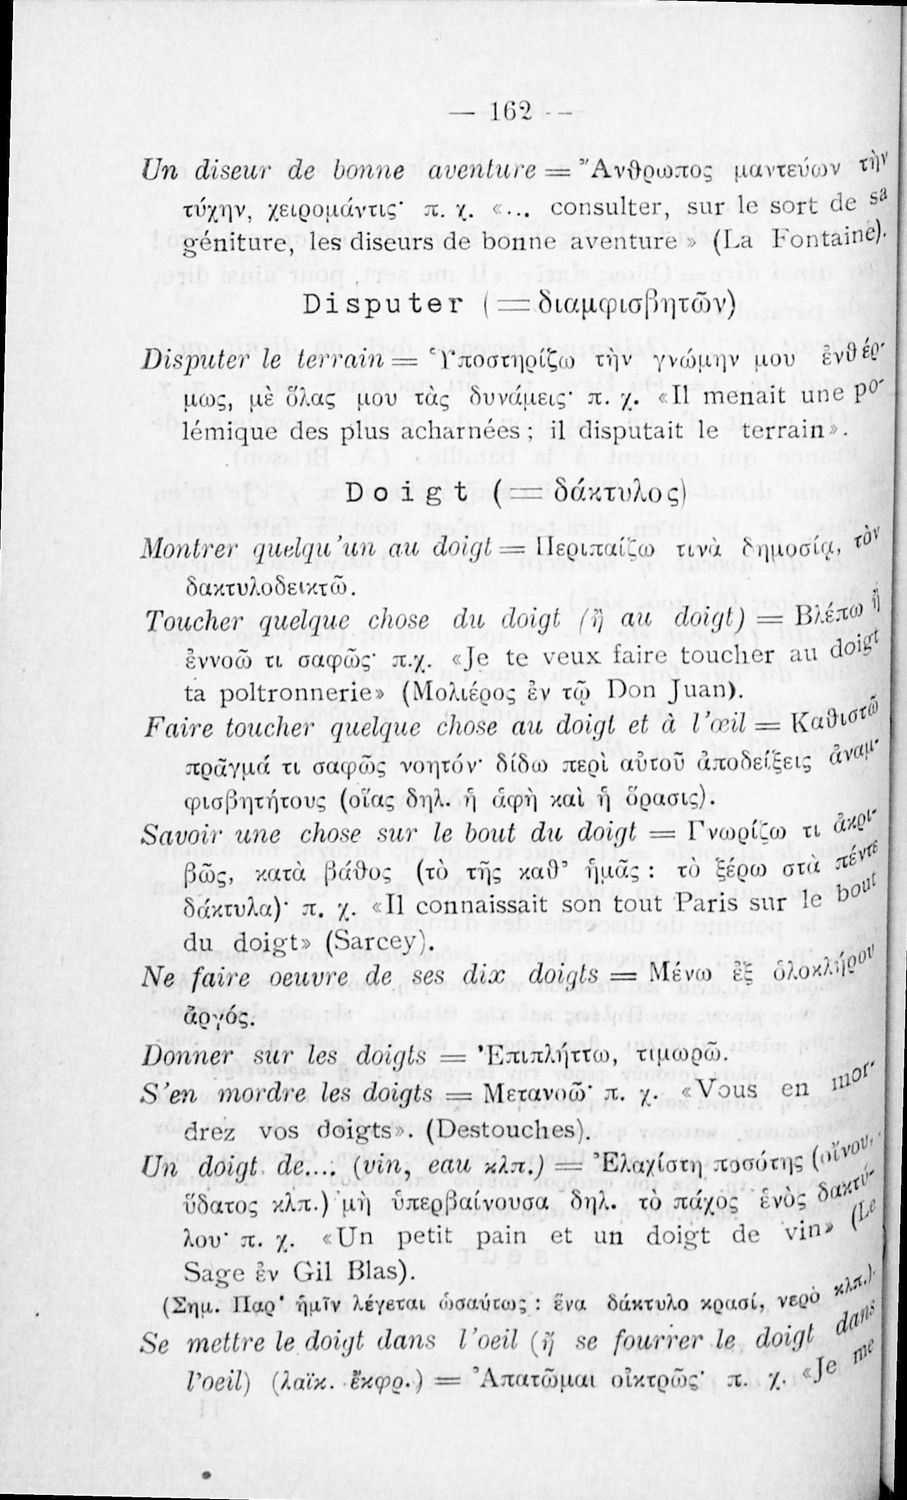 — 162 —
Un diseur de bonne aventure = Ἄνθρωπος μαντεύων τὴν
τύχην, χειρομάντις· π. χ. «... consulter, sur le sort de sa
géniture, les diseurs de bonne aventure» (La Fontaine).
Disputer (= διαμφισβητῶν)
Disputer le terrain = Ὑποστηρίζω τὴν γνώμην μου ἐνθέρ-
μως, μὲ ὅλας μου τὰς δυνάμεις· π. χ. «Il menait une po-
lémique des plus acharnées ; il disputait le terrain».
Doigt (= δάκτυλος)
Montrer quelqu'un au doigt = Περιπαίζω τινὰ δημοσίᾳ, τὸν
δακτυλοδεικτῶ.
Toucher quelque chose du doigt (ἢ au doigt) = Βλέπω ἢ
ἐννοῶ τι σαφῶς· π.χ. «Je te veux faire toucher au doigt
ta poltronnerie» (Μολιέρος ἐν τῷ Don Juan).
Faire toucher quelque chose au doigt et à l'œil = Καθιστῶ
πρᾶγμά τι σαφῶς νοητόν· δίδω περὶ αὐτοῦ ἀποδείξεις ἀναμ-
φισβητήτους (οἵας δηλ. ἡ ἁφὴ καὶ ἡ ὅρασις).
Savoir une chose sur le bout du doigt = Γνωρίζω τι ἀκρι-
βῶς, κατὰ βάθος (τὸ τῆς καθ' ἡμᾶς : τὸ ξέρω στὰ πέντε
δάκτυλα)· π. χ. «Il connaissait son tout Paris sur le bout
du doigt» (Sarcey).
Ne faire oeuvre de ses dix doigts = Μένω ἐξ ὁλοκλήρου
ἀργός.
Donner sur les doigts = Ἐπιπλήττω, τιμωρῶ.
S'en mordre les doigts = Μετανοῶ· π. χ. «Vous en mor-
drez vos doigts». (Destouches).
Un doigt de... (vin, eau κλπ.) = Ἐλαχίστη ποσότης (οἴνου,
ὕδατος κλπ.) μὴ ὑπερβαίνουσα δηλ. τὸ πάχος ἑνὸς δακτύ-
λου· π. χ. «Un petit pain et un doigt de vin» (Le
Sage ἐν Gil Blas).
(Σημ. Παρ' ἡμῖν λέγεται ὡσαύτως : ἕνα δάκτυλο κρασί, νερὸ κλπ.).
Se mettre le doigt dans l'oeil (ἢ se fourrer le doigt dans
l'oeil) (λαϊκ. ἔκφρ.) = Ἀπατῶμαι οἰκτρῶς· π. χ. «Je me